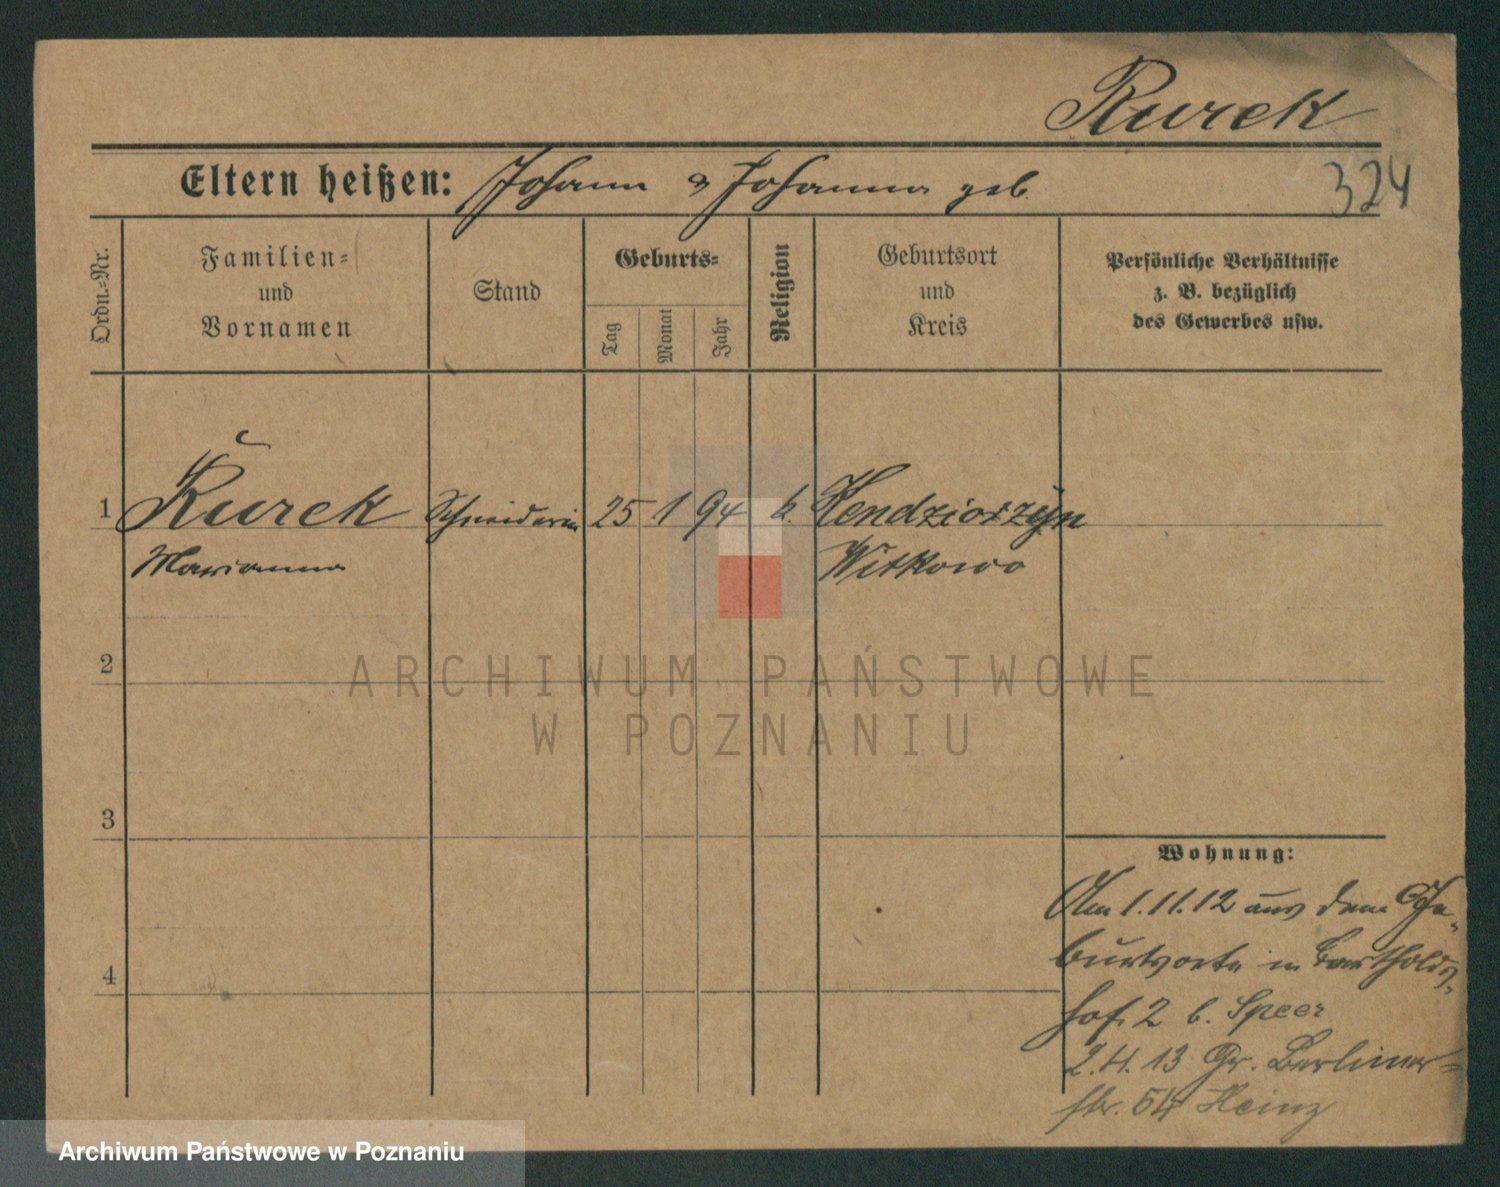 Kurek
Eltern heißen: Johann & Johanna geb.
324
Ordn.-Nr.
Familien-
und
Vornamen
Stand
Geburts-
Tag
Monat
Jahr
Religion
Geburtsort
und
Kreis
Persönliche Verhältnisse
z. B. bezüglich
des Gewerbes usw.
1 Kurek Schneiderin 25 1 94 k. Kendziorzyn
Marianna Witkowo
2
ARCHIWUM PAŃSTWOWE
W POZNANIU
3
Wohnung:
Am 1.11.12 aus dem Ge-
burtsorte in Bartholds-
4
hof. 2 b. Speer
2.4.13 Gr. Berliner-
str. 54 Heinz
Archiwum Państwowe w Poznaniu